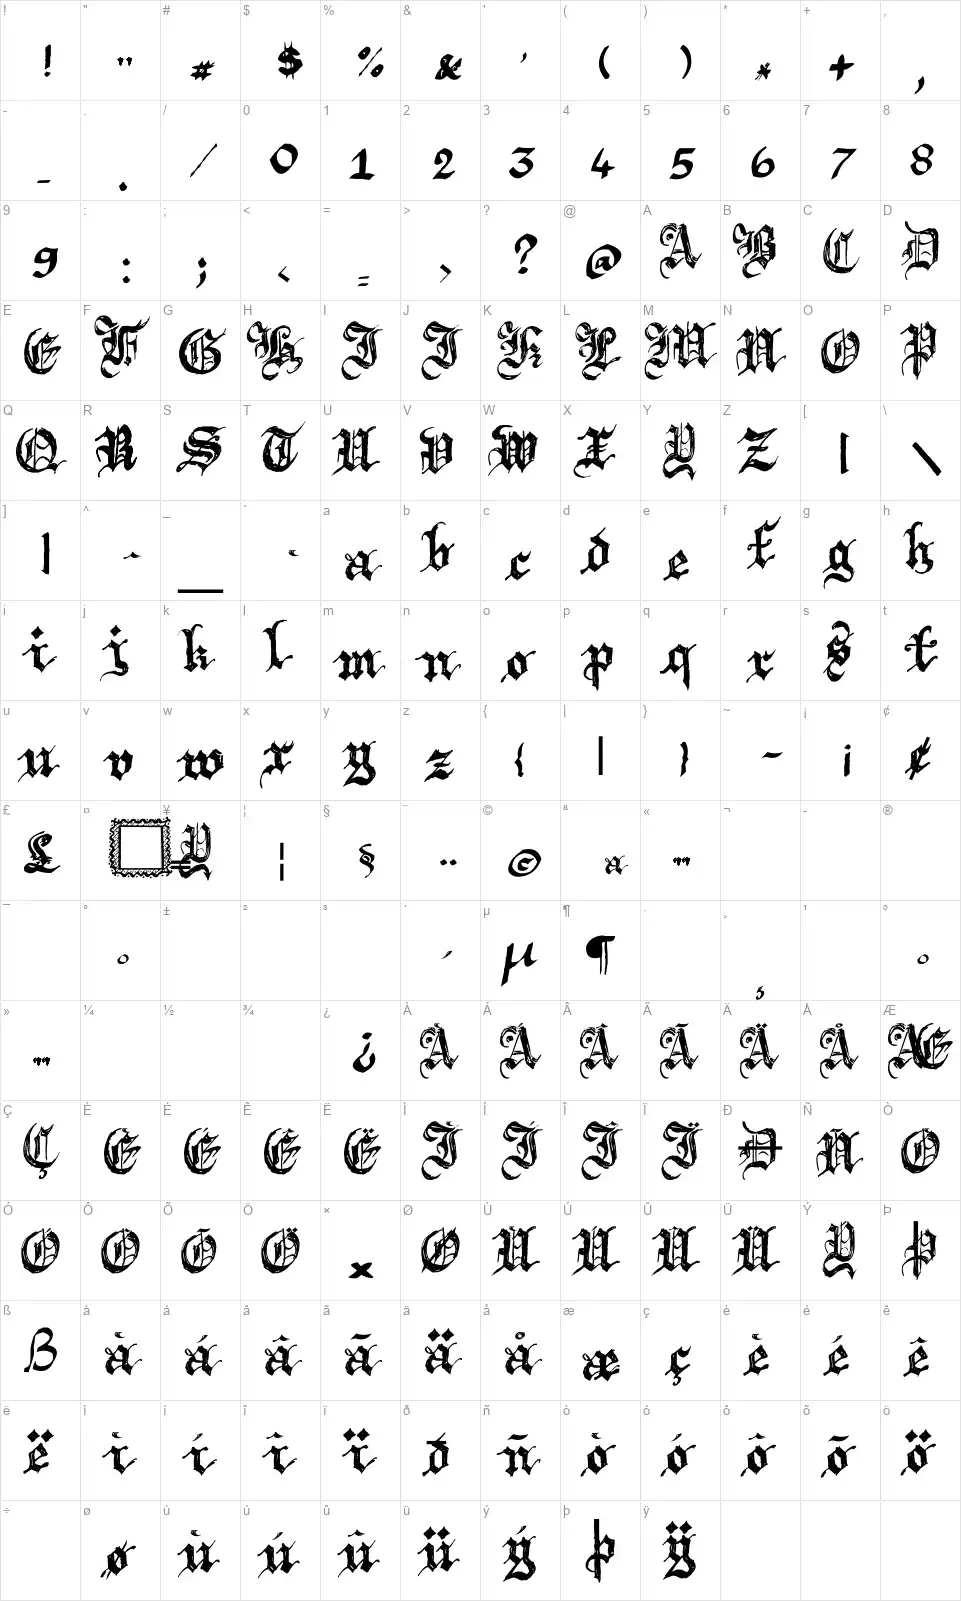 ! " # $ % & ' ( ) * + ,
! " # $ % & ' ( ) * + ,
- . / 0 1 2 3 4 5 6 7 8
- . / 0 1 2 3 4 5 6 7 8
9 : ; < = > ? @ A B C D
9 : ; < = > ? @ A B C D
E F G H I J K L M N O P
E F G H I J K L M N O P
Q R S T U V W X Y Z [ \
Q R S T U V W X Y Z [ \
] ^ _ ` a b c d e f g h
] ^ _ ` a b c d e f g h
i j k l m n o p q r s t
i j k l m n o p q r s t
u v w x y z { | } ~ ¡ ¢
u v w x y z { | } ~ ¡ ¢
£ ¤ ¥ ¦ § ¨ © ª « ¬ - ®
£ ¥ ¦ § ¨ © ª «
¯ ° ± ² ³ ´ µ ¶ · ¸ ¹ º
° ´ µ ¶ ¸ º
» ¼ ½ ¾ ¿ À Á Â Ã Ä Å Æ
» ¿ À Á Â Ã Ä Å Æ
Ç È É Ê Ë Ì Í Î Ï Ð Ñ Ò
Ç È É Ê Ë Ì Í Î Ï Ð Ñ Ò
Ó Ô Õ Ö × Ø Ù Ú Û Ü Ý Þ
Ó Ô Õ Ö × Ø Ù Ú Û Ü Ý Þ
ß à á â ã ä å æ ç è é ê
ß à á â ã ä å æ ç è é ê
ë ì í î ï ð ñ ò ó ô õ ö
ë ì í î ï ð ñ ò ó ô õ ö
÷ ø ù ú û ü ý þ ÿ
ø ù ú û ü ý þ ÿ